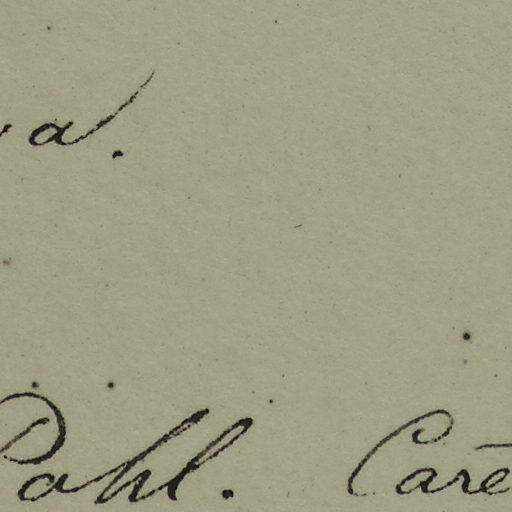 a.
Pahl. Care